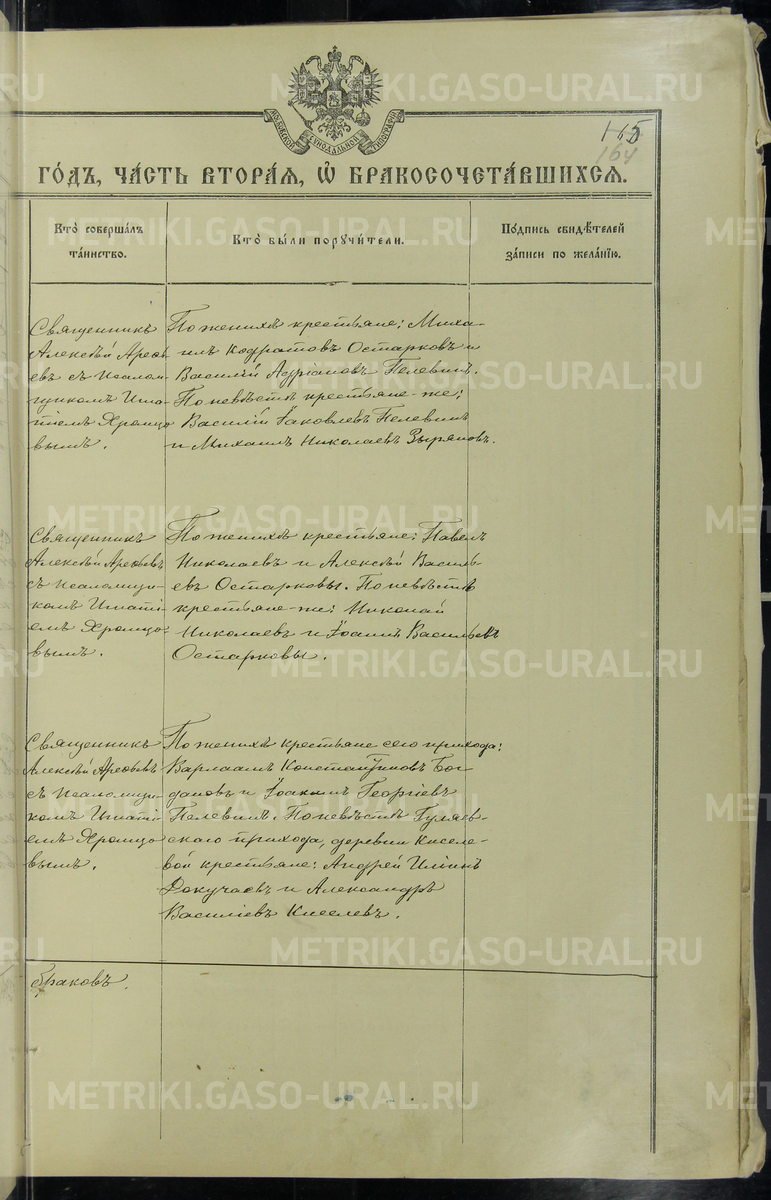 МОСКОВСКОЙ СѴНОДАЛЬНОЙ ТИПОГРАФІИ
165
164
ГО́ДЪ, ЧА́СТЬ ВТОРА́Я, Ѡ҆ БРАКОСОЧЕТА́ВШИХСЯ.
Кто̀ соверша́лъ
та́инство.
Кто̀ бы́ли пору́чители.
По́дпись свидѣ́телей
за́писи по жела́нїю.
Священникъ
Алексѣй Арефь
евъ съ псалом
щикомъ Игна
тіемъ Хромцо
вымъ.
По женихѣ крестьяне: Миха-
илъ Кодратовъ Остарковъ и
Василій Адріановъ Пелевинъ.
По невѣстѣ крестьяне-же:
Василій Яковлевъ Пелевинъ
и Михаилъ Николаевъ Зыряновъ.
Священникъ
Алексѣй Арефьевъ
съ псаломщи-
комъ Игнаті
емъ Хромцо-
вымъ.
По женихѣ крестьяне: Павелъ
Николаевъ и Алексѣй Василь-
евъ Остарковы. По невѣстѣ
крестьяне-же: Николай
Николаевъ и Іоаннъ Васильевъ
Остарковы.
Священникъ
Алексѣй Арефьевъ
съ псаломщи-
комъ Игнаті
емъ Хромцо
вымъ.
По женихѣ крестьяне сего прихода:
Варлаамъ Константиновъ Бог
дановъ и Іоакимъ Георгіевъ
Пелевинъ. По невѣстѣ Гуляев-
скаго прихода, деревни Киселе-
вой крестьяне: Андрей Илiинъ
Докучаевъ и Александръ
Василіевъ Киселевъ.
браковъ.
METRIKI.GASO-URAL.RU